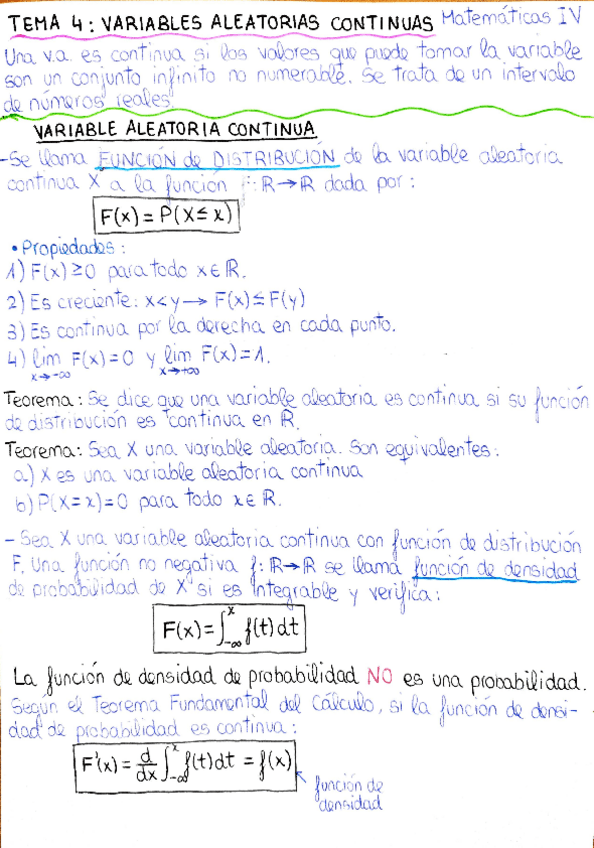 TEMA 4: VARIABLES ALEATORIAS CONTINUAS Matemáticas IV
Una v.a. es continua si los valores que puede tomar la variable
son un conjunto infinito no numerable. Se trata de un intervalo
de números reales.
VARIABLE ALEATORIA CONTINUA
-Se llama FUNCIÓN de DISTRIBUCIÓN de la variable aleatoria
continua X a la función f: ℝ→ℝ dada por:
F(x) = P(X ≤ x)
• Propiedades:
1) F(x) ≥ 0 para todo x ∈ ℝ.
2) Es creciente: x < y → F(x) ≤ F(y)
3) Es continua por la derecha en cada punto.
4) lim x→-∞ F(x) = 0 y lim x→+∞ F(x) = 1.
Teorema: Se dice que una variable aleatoria es continua si su función
de distribución es continua en ℝ.
Teorema: Sea X una variable aleatoria. Son equivalentes:
a) X es una variable aleatoria continua
b) P(X = x) = 0 para todo x ∈ ℝ.
- Sea X una variable aleatoria continua con función de distribución
F. Una función no negativa f: ℝ→ℝ se llama función de densidad
de probabilidad de X si es integrable y verifica:
F(x) = ∫_{-∞}^{x} f(t) dt
La función de densidad de probabilidad NO es una probabilidad.
Según el Teorema Fundamental del Cálculo, si la función de densi-
dad de probabilidad es continua:
F'(x) = d/dx ∫_{-∞}^{x} f(t) dt = f(x)
función de
densidad